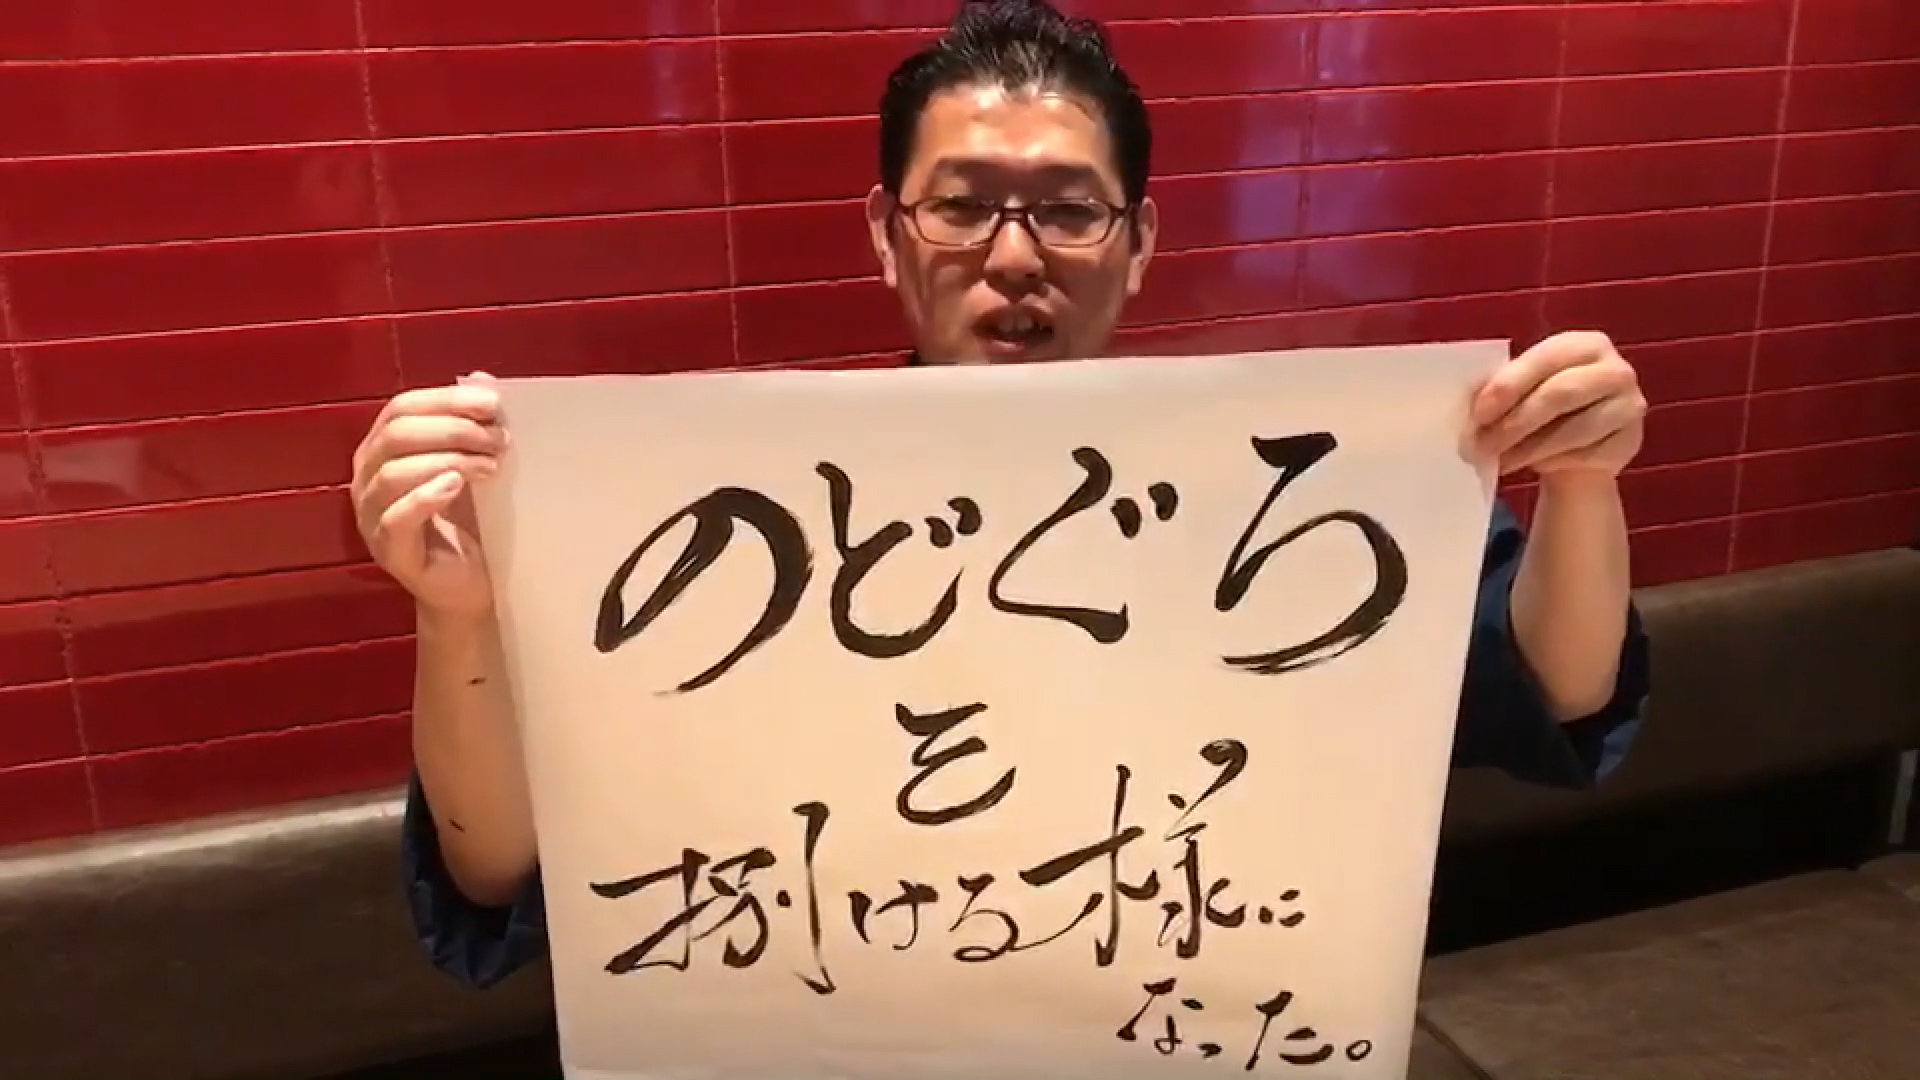 のどぐろ
を
捌ける様に
なった。